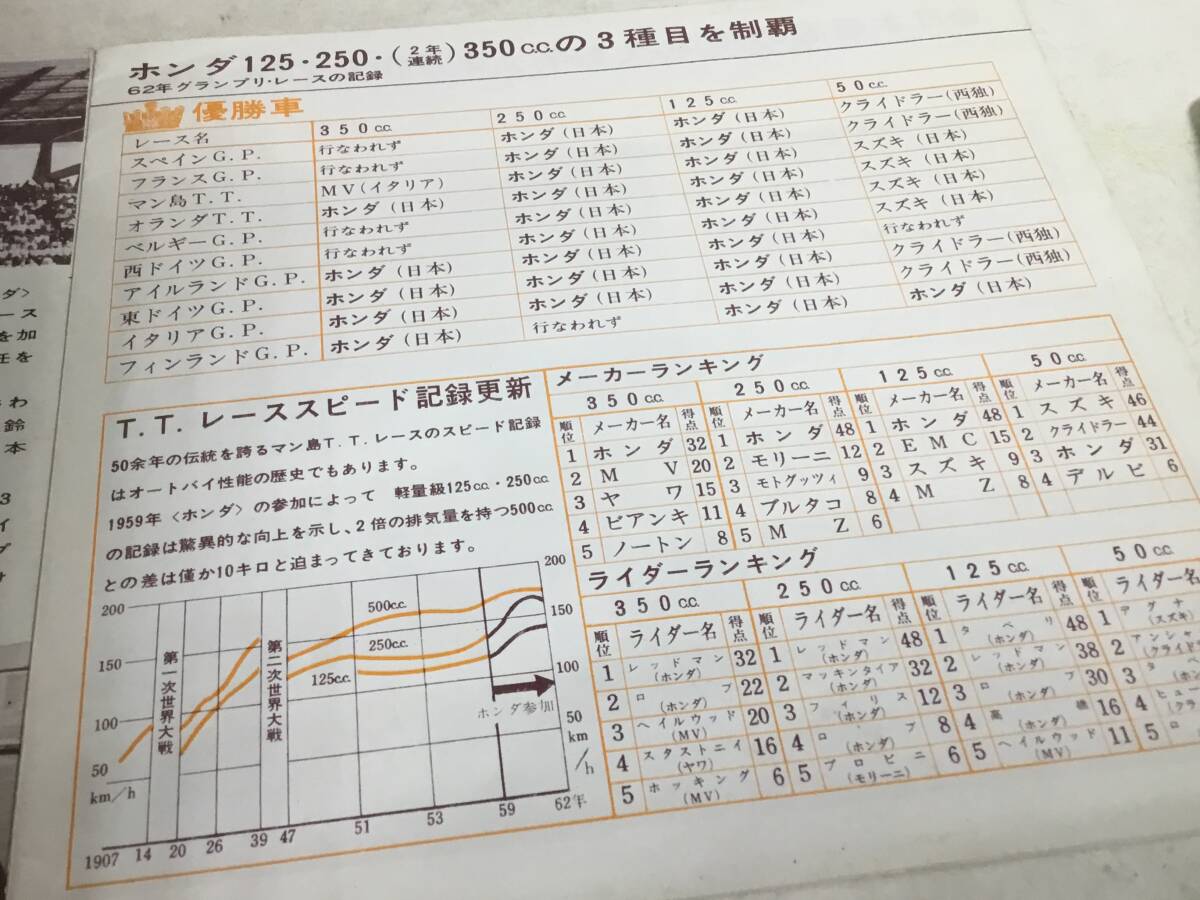 ホンダ125・250・(2年連続)350c.c.の3種目を制覇
62年グランプリ・レースの記録
優勝車
レース名 350c.c. 250c.c. 125c.c. 50c.c.
スペインG.P. 行なわれず ホンダ(日本) ホンダ(日本) クライドラー(西独)
フランスG.P. 行なわれず ホンダ(日本) ホンダ(日本) クライドラー(西独)
マン島T.T. MV(イタリア) ホンダ(日本) ホンダ(日本) スズキ(日本)
オランダT.T. ホンダ(日本) ホンダ(日本) ホンダ(日本) スズキ(日本)
ベルギーG.P. 行なわれず ホンダ(日本) ホンダ(日本) スズキ(日本)
西ドイツG.P. 行なわれず ホンダ(日本) ホンダ(日本) スズキ(日本)
アイルランドG.P. ホンダ(日本) ホンダ(日本) ホンダ(日本) 行なわれず
東ドイツG.P. ホンダ(日本) ホンダ(日本) ホンダ(日本) クライドラー(西独)
イタリアG.P. ホンダ(日本) ホンダ(日本) ホンダ(日本) クライドラー(西独)
フィンランドG.P. ホンダ(日本) 行なわれず ホンダ(日本) ホンダ(日本)
T.T.レーススピード記録更新
50余年の伝統を誇るマン島T.T.レースのスピード記録
はオートバイ性能の歴史でもあります。
1959年〈ホンダ〉の参加によって 軽量級125c.c.・250c.c.
の記録は驚異的な向上を示し、2倍の排気量を持つ500c.c.
との差は僅か10キロと迫まってきております。
200 150 100 50 km/h
第一次世界大戦
第二次世界大戦
500c.c.
250c.c.
125c.c.
ホンダ参加
200 150 100 50 km/h
1907 14 20 26 39 47 51 53 59 62年
メーカーランキング
350c.c. 250c.c. 125c.c. 50c.c.
順位 メーカー名 得点 順位 メーカー名 得点 順位 メーカー名 得点 順位 メーカー名 得点
1 ホンダ 32 1 ホンダ 48 1 ホンダ 48 1 スズキ 46
2 MV 20 2 モリーニ 12 2 EMC 15 2 クライドラー 44
3 ヤワ 15 3 モトグッツィ 9 3 スズキ 9 3 ホンダ 31
4 ビアンキ 11 4 ブルタコ 8 4 MZ 8 4 デルビ 6
5 ノートン 8 5 MZ 6
ライダーランキング
350c.c. 250c.c. 125c.c. 50c.c.
順位 ライダー名 得点 順位 ライダー名 得点 順位 ライダー名 得点 順位 ライダー名
1 レッドマン(ホンダ) 32 1 レッドマン(ホンダ) 48 1 タベリ(ホンダ) 48 1 デグナ(スズキ)
2 ロブ(ホンダ) 22 2 マッキンタイア(ホンダ) 32 2 レッドマン(ホンダ) 38 2 アンシャ(クライド
3 ヘイルウッド(MV) 20 3 フィリス(ホンダ) 12 3 ロブ(ホンダ) 30 3 タベ(ホン
4 スタストニイ(ヤワ) 16 4 ロブ(ホンダ) 8 4 高橋(ホンダ) 16 4 ヒュー(クラ
5 ホッキング(MV) 6 5 プロビニ(モリーニ) 6 5 ヘイルウッド(MV) 11 5 ロ
ダ>
ース
を加
任を
わ
鈴
本
3
イ